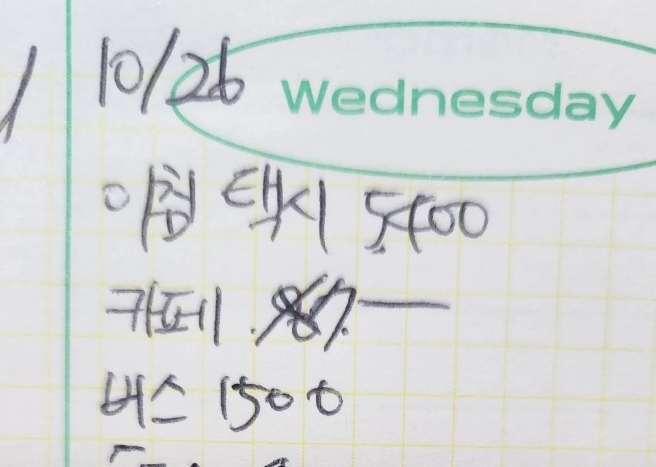 10/26 Wednesday
아침 택시 5400
카페
버스 1500